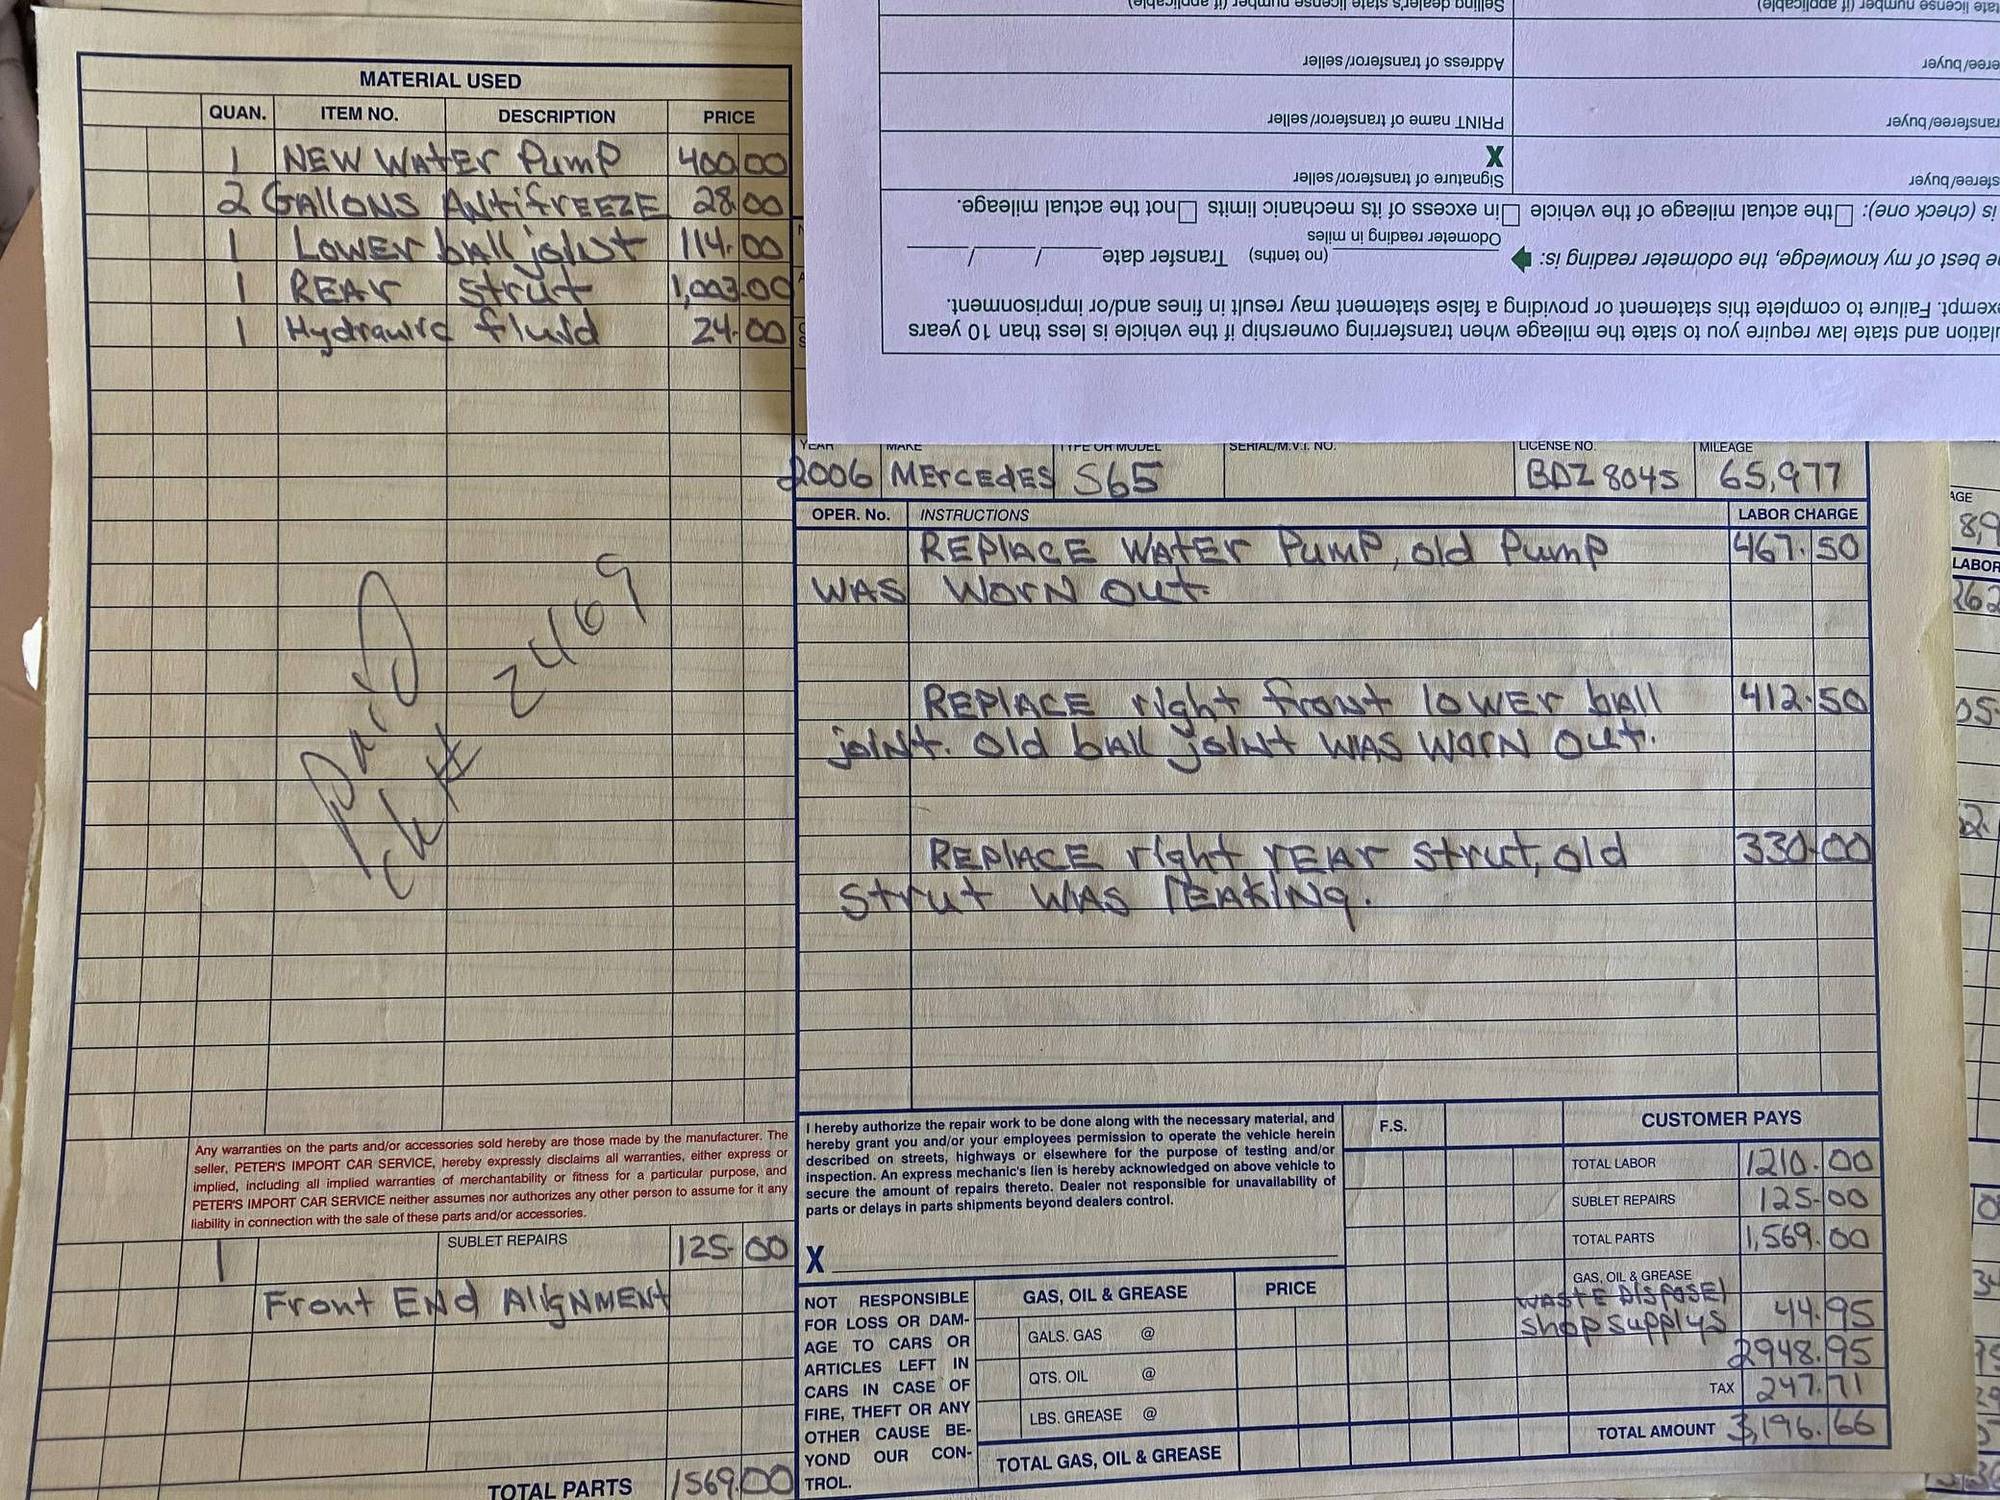 MATERIAL USED
QUAN. ITEM NO. DESCRIPTION PRICE
1 NEW WATER PUMP 400.00
2 GALLONS ANTIFREEZE 28.00
1 LOWER ball joint 114.00
1 REAR strut 1,003.00
1 Hydraulic fluid 24.00
Paid
ck# 2469
Any warranties on the parts and/or accessories sold hereby are those made by the manufacturer. The
seller, PETER'S IMPORT CAR SERVICE, hereby expressly disclaims all warranties, either express or
implied, including all implied warranties of merchantability or fitness for a particular purpose, and
PETER'S IMPORT CAR SERVICE neither assumes nor authorizes any other person to assume for it any
liability in connection with the sale of these parts and/or accessories.
1 SUBLET REPAIRS 125.00
Front END AlIGNMENT
TOTAL PARTS 1569.00
ulation and state law require you to state the mileage when transferring ownership if the vehicle is less than 10 years
exempt. Failure to complete this statement or providing a false statement may result in fines and/or imprisonment.
e best of my knowledge, the odometer reading is: (no tenths) Transfer date / /
Odometer reading in miles
is (check one): the actual mileage of the vehicle in excess of its mechanic limits not the actual mileage.
sferee/buyer Signature of transferor/seller
X
ransferee/buyer PRINT name of transferor/seller
eree/buyer Address of transferor/seller
tate license number (if applicable) Selling dealer's state license number (if applicable)
YEAR MAKE TYPE OR MODEL SERIAL/M.V.I. NO. LICENSE NO. MILEAGE
2006 MERCEDES S65 BDZ 8045 65,977
OPER. No. INSTRUCTIONS LABOR CHARGE
REPLACE WATER PUMP, old PUMP 467.50
WAS WORN OUT.
REPLACE right front lOWER ball 412.50
joint. Old ball joint WAS WORN OUT.
REPLACE right rEAR strut, old 330.00
strut WAS lEAKING.
I hereby authorize the repair work to be done along with the necessary material, and
hereby grant you and/or your employees permission to operate the vehicle herein
described on streets, highways or elsewhere for the purpose of testing and/or
inspection. An express mechanic's lien is hereby acknowledged on above vehicle to
secure the amount of repairs thereto. Dealer not responsible for unavailability of
parts or delays in parts shipments beyond dealers control.
X
NOT RESPONSIBLE
FOR LOSS OR DAM-
AGE TO CARS OR
ARTICLES LEFT IN
CARS IN CASE OF
FIRE, THEFT OR ANY
OTHER CAUSE BE-
YOND OUR CON-
TROL.
GAS, OIL & GREASE PRICE
GALS. GAS @
QTS. OIL @
LBS. GREASE @
TOTAL GAS, OIL & GREASE
F.S. CUSTOMER PAYS
TOTAL LABOR 1210.00
SUBLET REPAIRS 125.00
TOTAL PARTS 1,569.00
GAS, OIL & GREASE
WASTE DISPOSEl
shop supplys 44.95
2948.95
TAX 247.71
TOTAL AMOUNT 3,196.66
AGE
89
LABOR
262